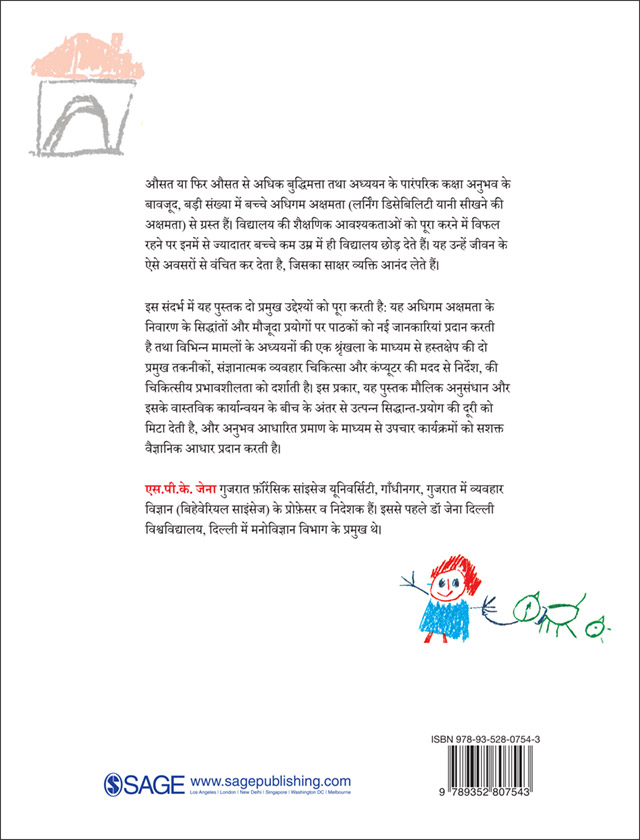 औसत या फिर औसत से अधिक बुद्धिमत्ता तथा अध्ययन के पारंपरिक कक्षा अनुभव के
बावजूद, बड़ी संख्या में बच्चे अधिगम अक्षमता (लर्निंग डिसेबिलिटी यानी सीखने की
अक्षमता) से ग्रस्त हैं। विद्यालय की शैक्षणिक आवश्यकताओं को पूरा करने में विफल
रहने पर इनमें से ज्यादातर बच्चे कम उम्र में ही विद्यालय छोड़ देते हैं। यह उन्हें जीवन के
ऐसे अवसरों से वंचित कर देता है, जिसका साक्षर व्यक्ति आनंद लेते हैं।
इस संदर्भ में यह पुस्तक दो प्रमुख उद्देश्यों को पूरा करती है: यह अधिगम अक्षमता के
निवारण के सिद्धांतों और मौजूदा प्रयोगों पर पाठकों को नई जानकारियां प्रदान करती
है तथा विभिन्न मामलों के अध्ययनों की एक श्रृंखला के माध्यम से हस्तक्षेप की दो
प्रमुख तकनीकों, संज्ञानात्मक व्यवहार चिकित्सा और कंप्यूटर की मदद से निर्देश, की
चिकित्सीय प्रभावशीलता को दर्शाती है। इस प्रकार, यह पुस्तक मौलिक अनुसंधान और
इसके वास्तविक कार्यान्वयन के बीच के अंतर से उत्पन्न सिद्धान्त-प्रयोग की दूरी को
मिटा देती है, और अनुभव आधारित प्रमाण के माध्यम से उपचार कार्यक्रमों को सशक्त
वैज्ञानिक आधार प्रदान करती है।
एस.पी.के. जेना गुजरात फ़ॉरेंसिक साइंसेज यूनिवर्सिटी, गाँधीनगर, गुजरात में व्यवहार
विज्ञान (बिहेवेरियल साइंसेज) के प्रोफ़ेसर व निदेशक हैं। इससे पहले डॉ जेना दिल्ली
विश्वविद्यालय, दिल्ली में मनोविज्ञान विभाग के प्रमुख थे।
ISBN 978-93-528-0754-3
9 789352 807543
SAGE www.sagepublishing.com
Los Angeles | London | New Delhi | Singapore | Washington DC | Melbourne